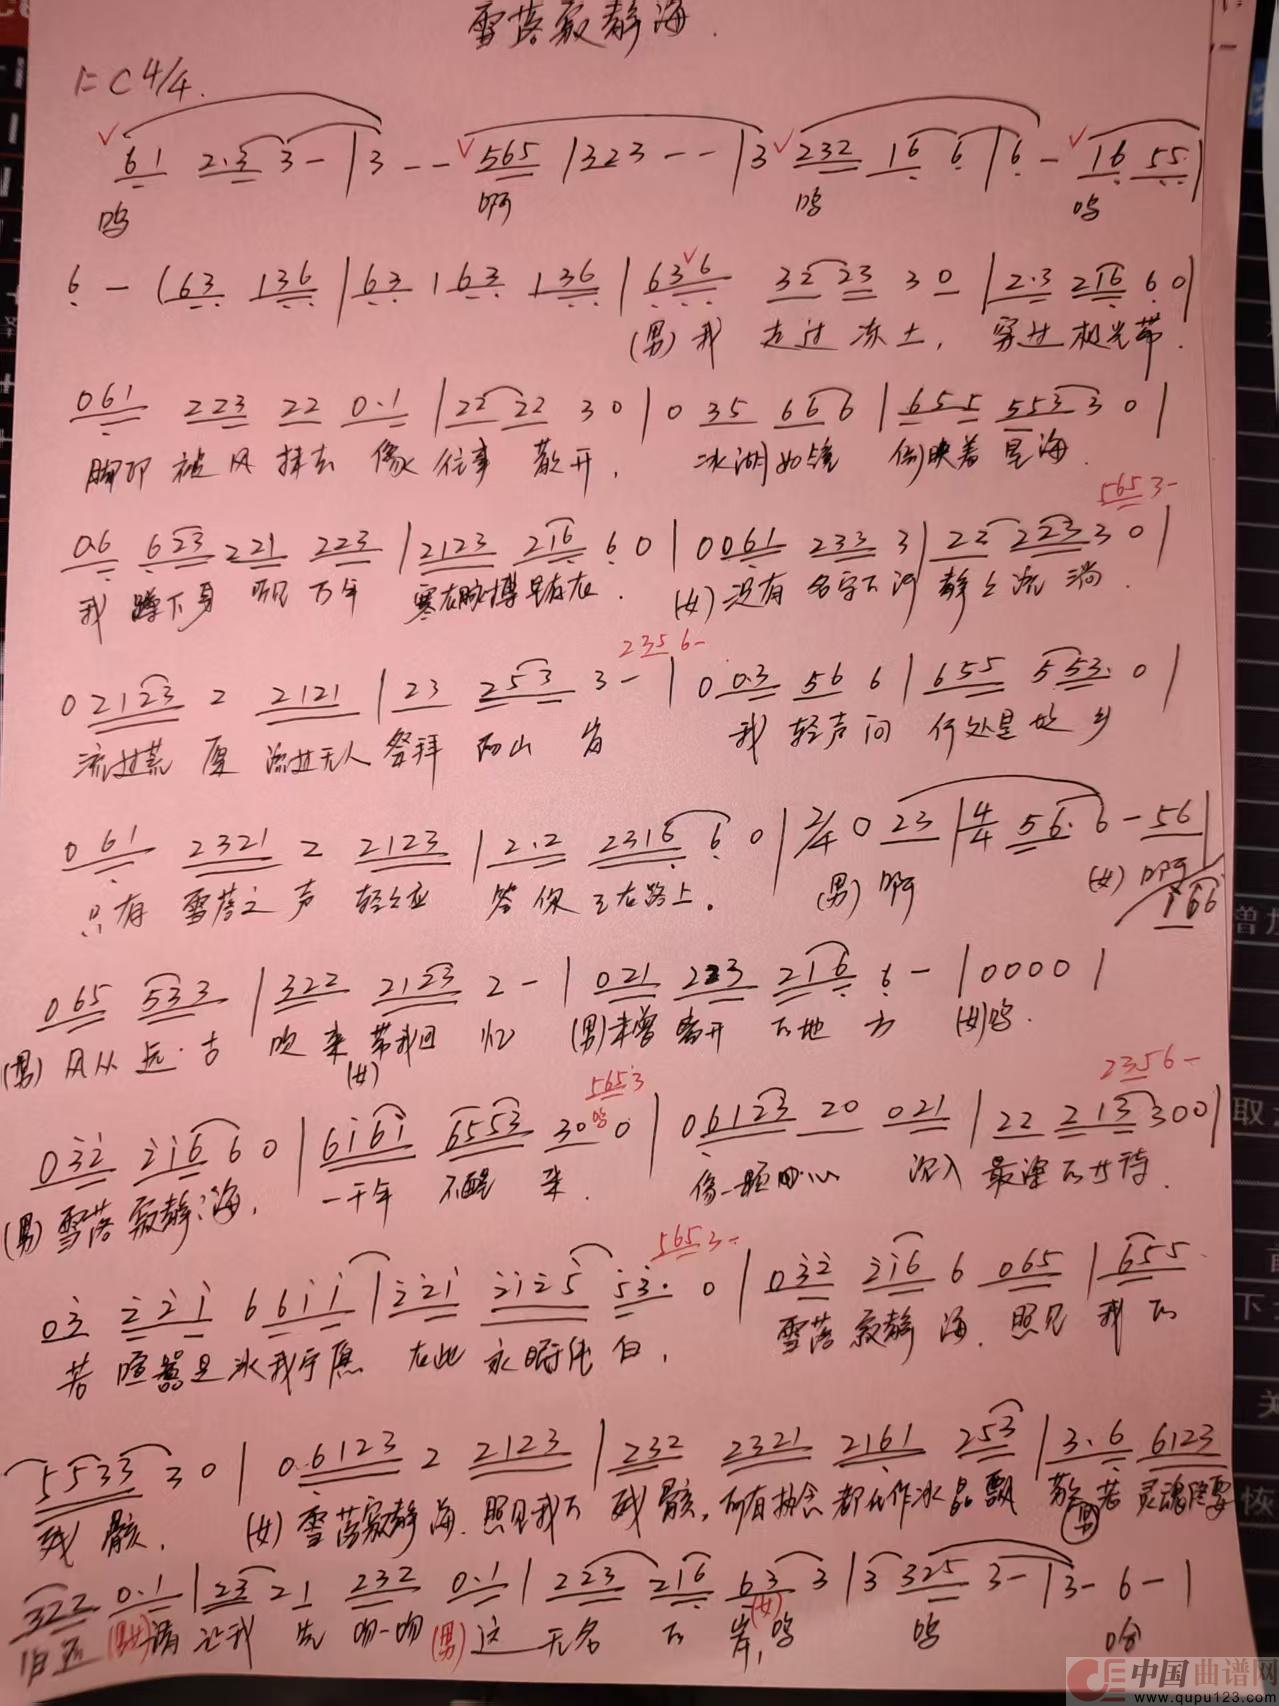 雪落寂静海.
1=C 4/4.
61 2·3 3 - | 3 - - 565 | 323 - - | 3 232 16 6 | 6 - 16 55 |
呜 啊 呜 呜
6 - (63 136 | 63 163 136 | 636 32 23 3 0 | 2·3 216 6 0 |
(男) 我 走过 冻土, 穿过 极光带.
061 223 22 0·1 | 22 22 3 0 | 0 35 66 6 | 655 553 3 0 |
脚印 被风 抹去 像 往事 散开, 冰湖如镜 倒映着 星海.
565 3 -
0·6 623 221 223 | 2123 216 6 0 | 0 061 233 3 | 22 223 3 0 |
我 蹲下身 听见 万年 寒在脉搏 (女) 没有 名字的河 静 流淌.
235 6 -
0 2123 2 2121 | 23 253 3 - | 0 0·3 56 6 | 655 553· 0 |
流过荒 原 流过无人 祭拜 的山 岗 我 轻声问 何处是 故乡
0 61 2321 2 2123 | 2·2 2316 6 0 | 2/4 0 23 | 4/4 56· 6 - 56 |
只有 雪落之 声 轻轻应 答 你 正在路上. (男) 啊 (女) 啊
166
065 533 | 322 2123 2 - | 021 223 216 6 - | 0000 |
(男) 风从 远古 吹来 带我回 忆 (男) 未曾 离开 的地 方 (女) 呜.
(女)
565 3 呜 2356 -
032 216 6 0 | 6161 6553 30 0 | 06123 20 021 | 22 213 300 |
(男) 雪落 寂静海, 一千年 不醒 来. 像一颗 沉入 最深的
565 3 -
03 221 6611 | 221 2125 53· 0 | 032 216 6 065 | 655
若 喧嚣是冰我宁愿 在此 永 白, 雪落 寂静 海. 照见 我的
5533 3 0 | 0·6123 2 2123 | 232 2321 2161 253 | 3·6 6123
残 骸. (女) 雪落寂静 海. 照见我的 残 骸, 所有执念 都化作冰晶飘 散 若 灵魂
(男)
322 0·1 | 23 21 232 0·1 | 223 216 63 3 | 3 325 3 - | 3 - 6 - |
归还 (男女) 请 让我 先 吻一吻 (男) 这 无名 的 岸, (女) 呜 呜
中国曲谱网
www.qupu123.com